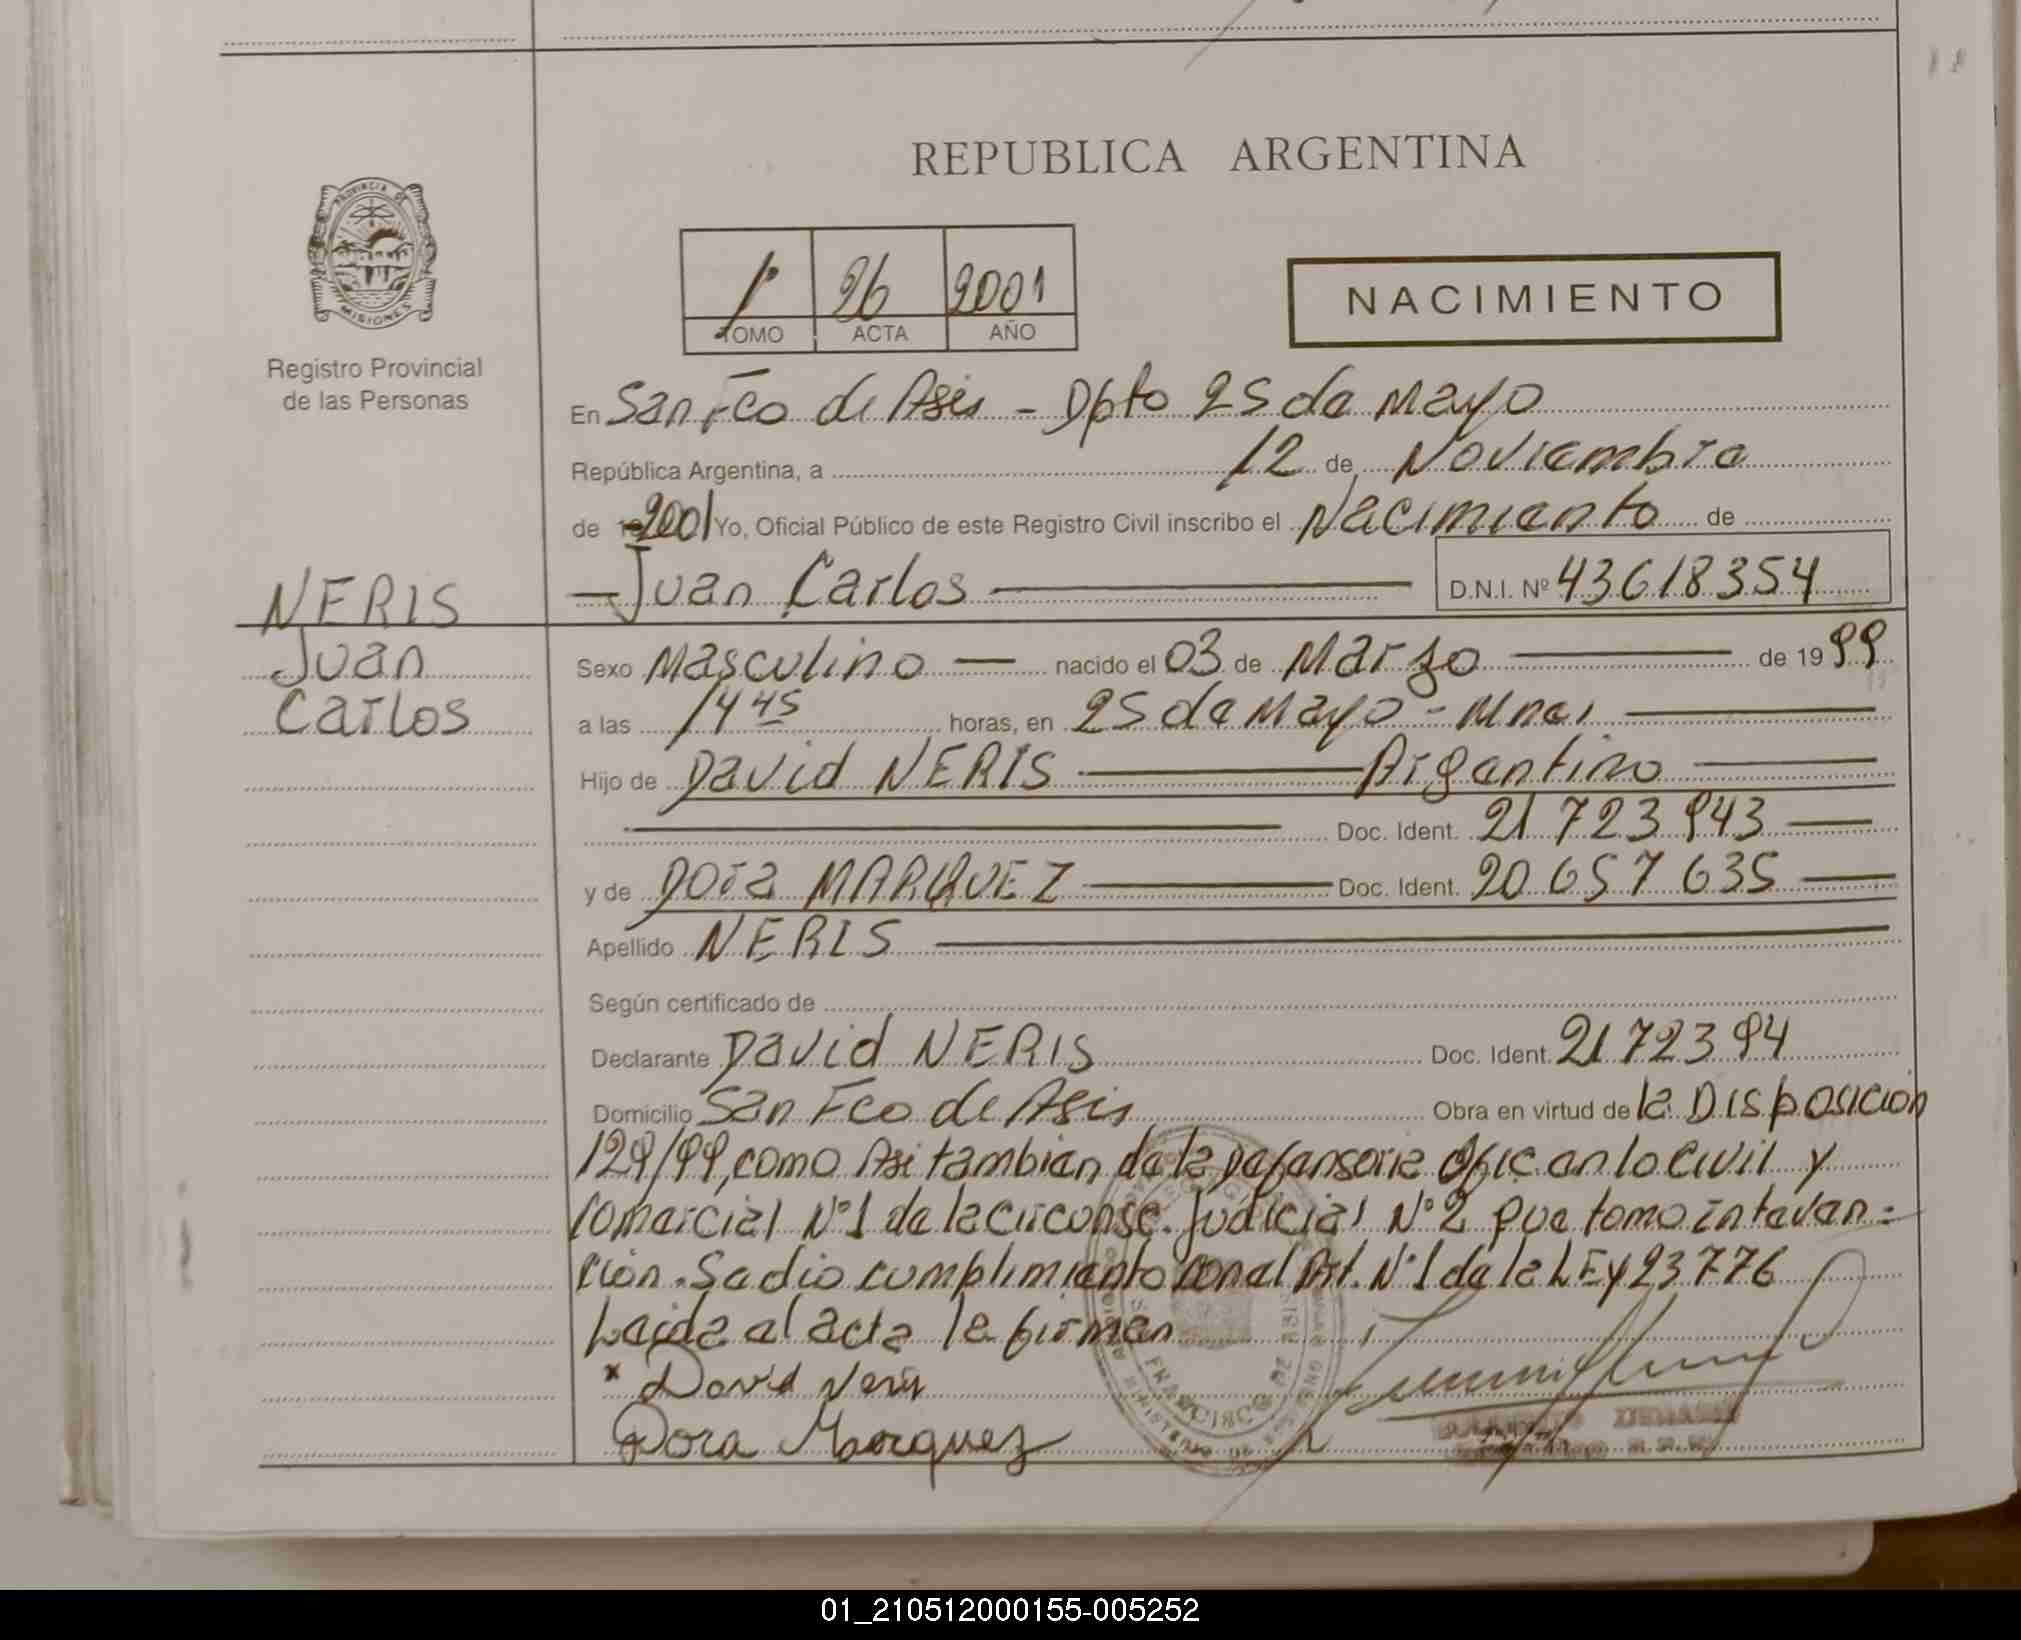 REPUBLICA ARGENTINA
PROVINCIA DE
MISIONES
Registro Provincial
de las Personas
1º 26 2001
TOMO ACTA AÑO
NACIMIENTO
En San Fco de Asis - Dpto 25 de Mayo
República Argentina, a 12 de Noviembre
de 2001 Yo, Oficial Público de este Registro Civil inscribo el Nacimiento de
Juan Carlos D.N.I. Nº 43618354
NERIS
Juan
Carlos
Sexo Masculino nacido el 03 de Marzo de 1999
a las 14 45 horas, en 25 de Mayo - Mnes
Hijo de David NERIS Argentino
Doc. Ident. 21 723 943
y de Dora MARQUEZ Doc. Ident. 20 657 635
Apellido NERIS
Según certificado de
Declarante David NERIS Doc. Ident. 21 723 94
Domicilio San Fco de Asis Obra en virtud de la Disposicion
129/99, como Asi tambien de la Defensoria Ofic en lo Civil y
Comercial Nº 1 de la Circonsc. Judicial Nº 2 que tomo interven=
cion. Se dio cumplimiento con el Art. Nº 1 de la LEY 23776
Leida el acta la firman
x David Neris
Dora Marquez
01_210512000155-005252